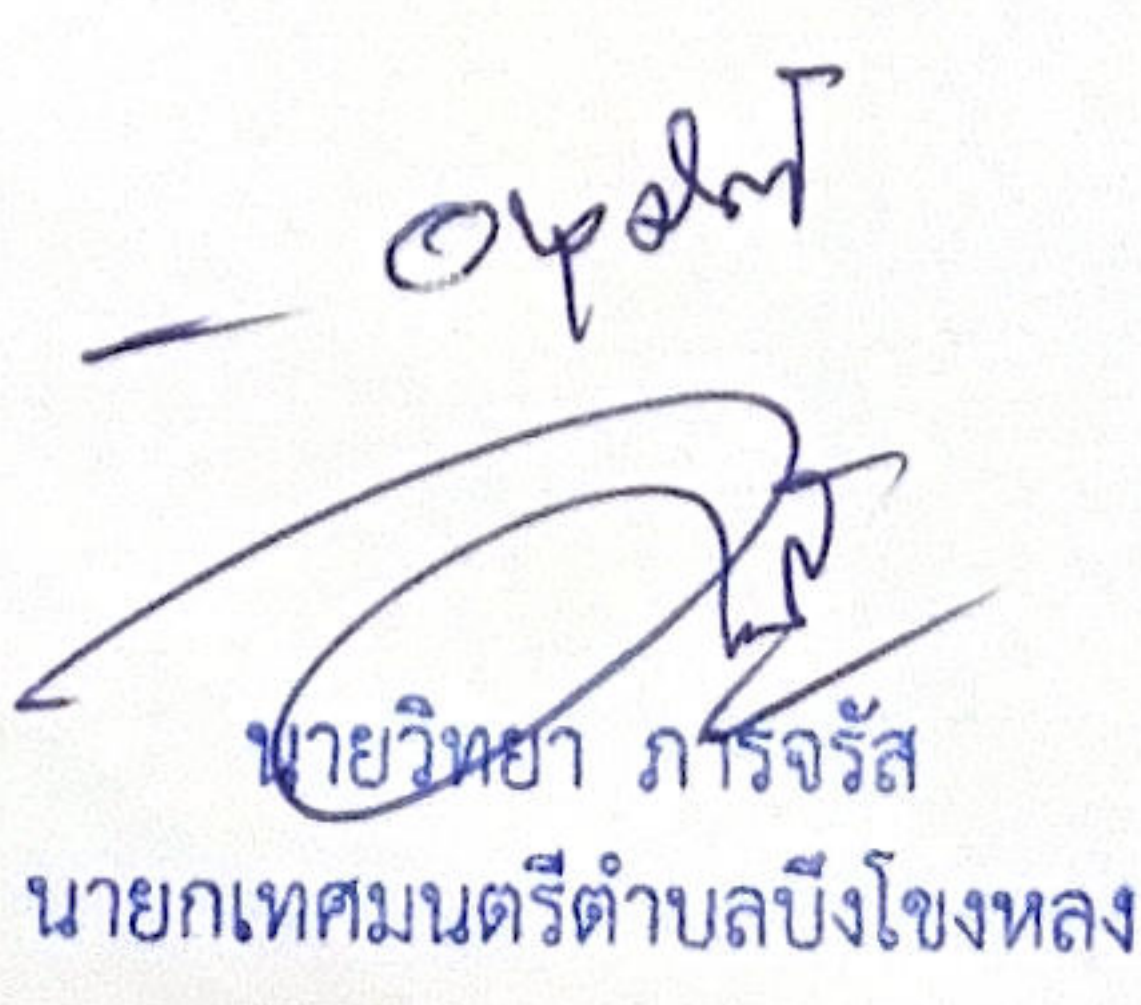 - อนุมัติ
นายวิทยา ภารจรัส
นายกเทศมนตรีตำบลบึงโขงหลง